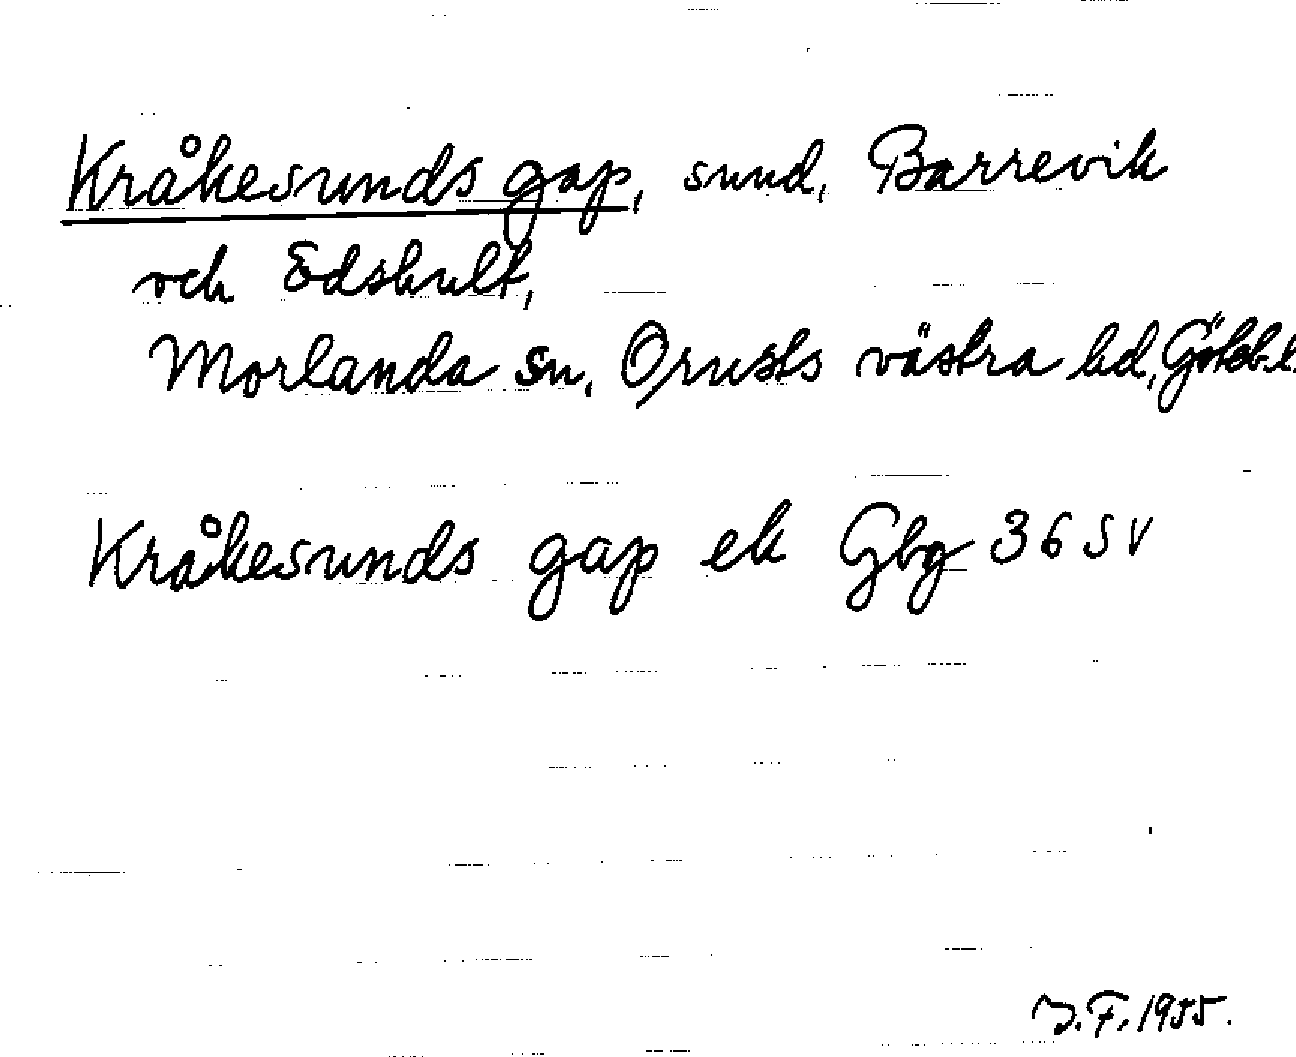 Kråkesunds gap, sund, Barrevik
och Edshult,
Morlanda sn. Orusts västra hd, Götebl.
Kråkesunds gap ek Gbg 36 SV
J.F. 1955.